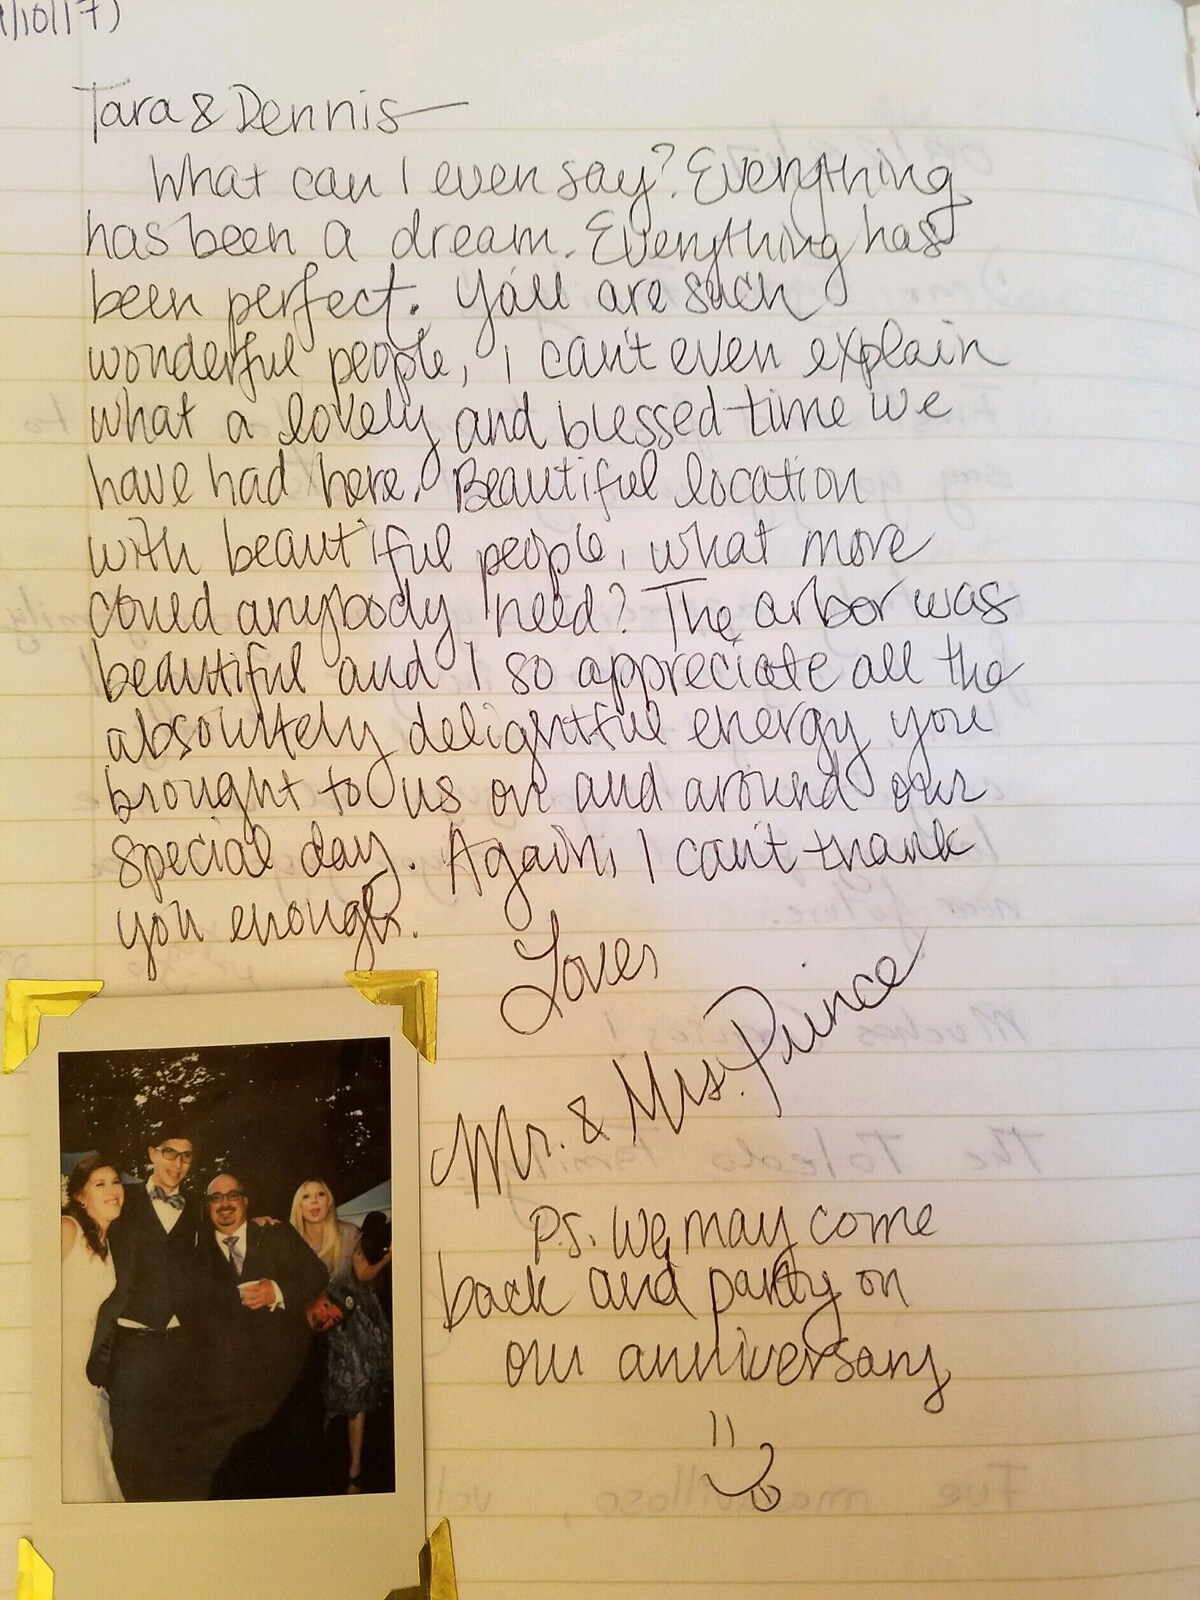 /10/17)
Tara & Dennis—
What can I even say? Everything
has been a dream. Everything has
been perfect. Y'all are such
wonderful people, I can't even explain
what a lovely and blessed time we
have had here. Beautiful location
with beautiful people, what more
could anybody need? The arbor was
beautiful and I so appreciate all the
absolutely delightful energy you
brought to us on and around our
special day. Again, I can't thank
you enough.
Love,
Mr. & Mrs. Prince
P.S. We may come
back and party on
our anniversary